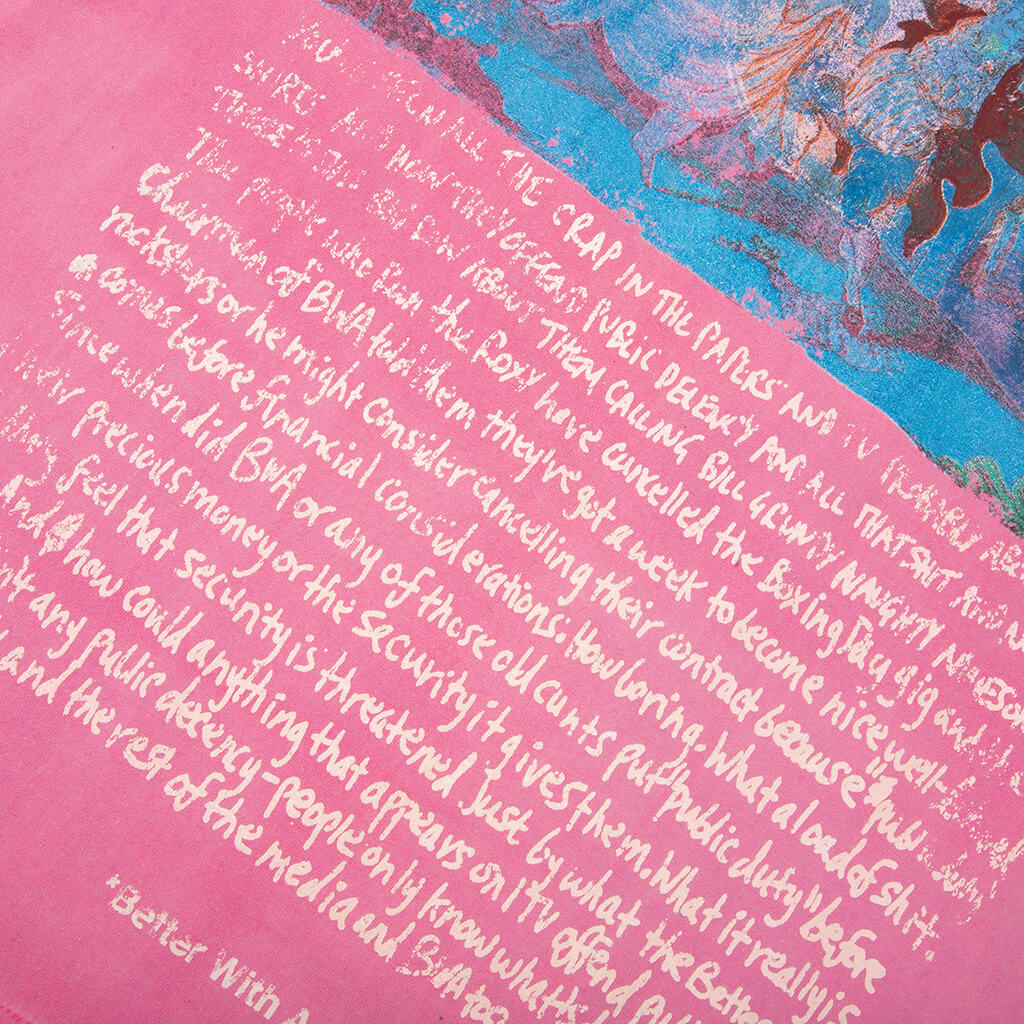 SEEN ALL THE CRAP IN THE PAPERS AND TV
AND HOW THEY OFFEND PUBLIC DECENCY AND ALL THAT SHIT AND
ABOUT THEM CALLING BILL GRUNDY NAUGHTY NAMES
The people who run the Roxy have cancelled the Boxing Day gig and
Chairman of BWA told them they've got a week to become nice well-
rockstars or he might consider cancelling their contract because "public duty
comes before financial considerations. How boring. What a load of shit.
Since when did BWA or any of those old cunts put "public duty" before
their precious money or the security it gives them. What it really is
they feel that security is threatened just by what the Better
And how could anything that appears on ITV offend
any public decency-people only know what
and the rest of the media and BWA too
"Better With